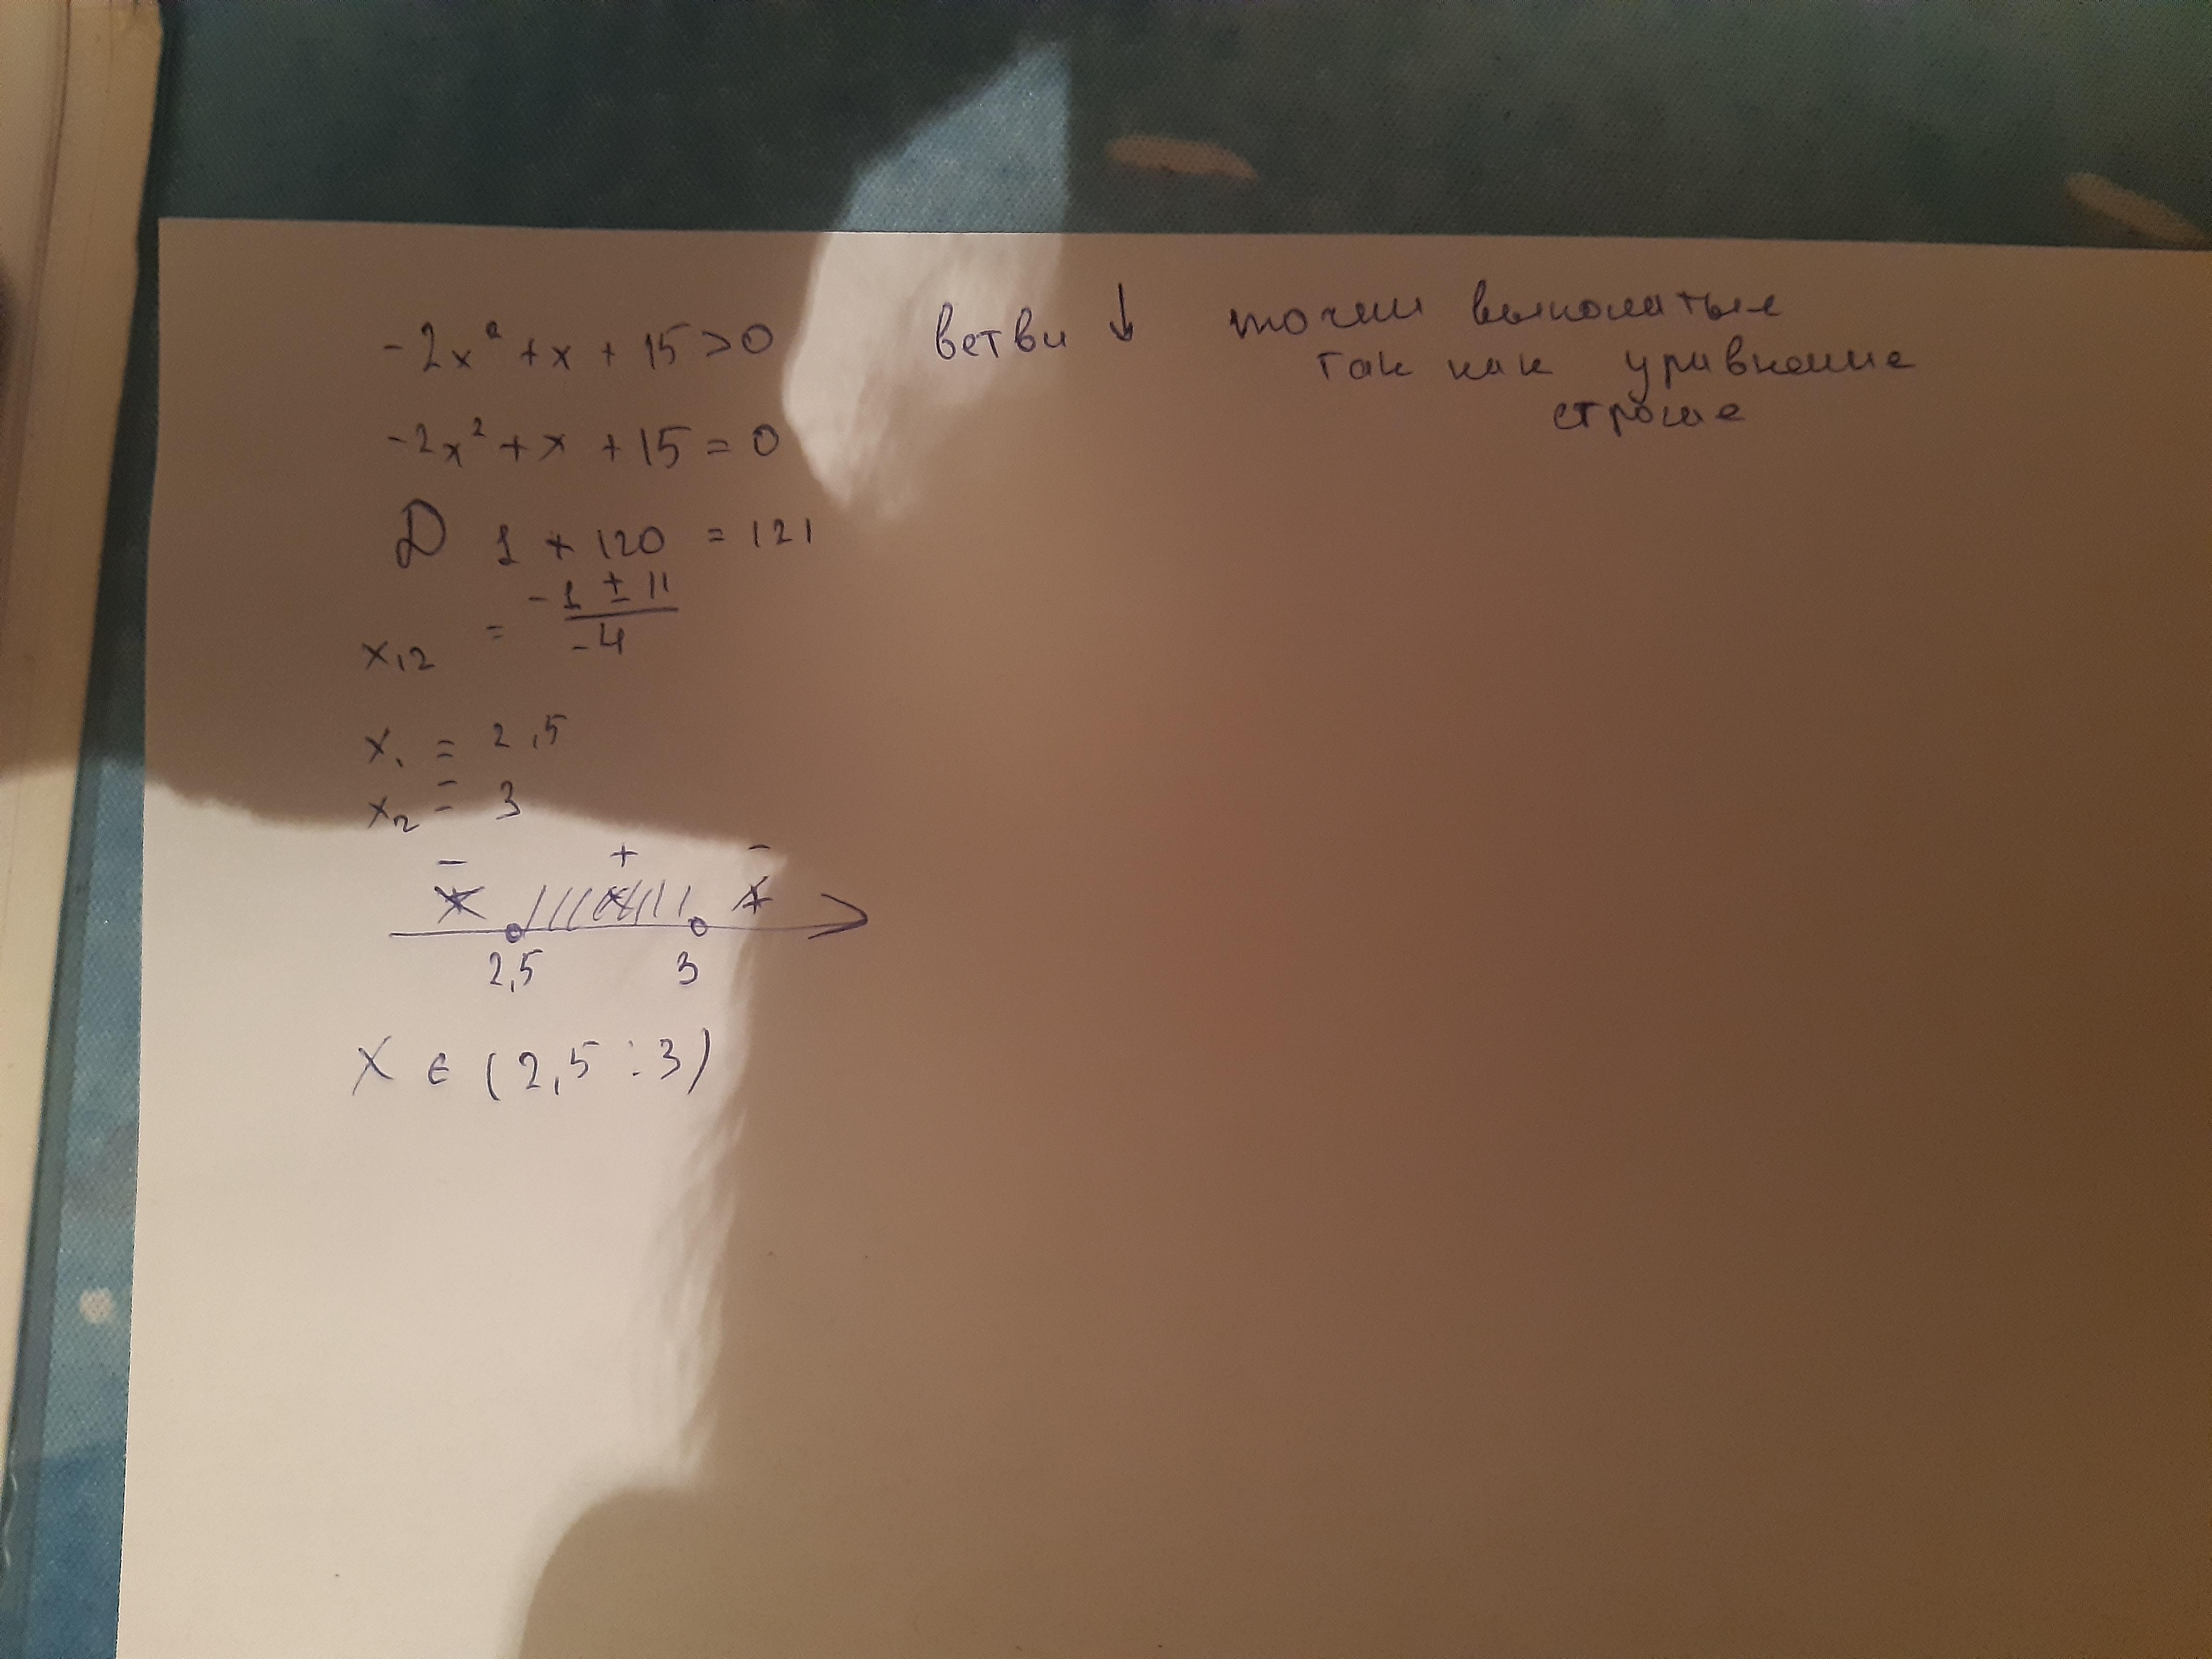 -2x² + x + 15 > 0
ветви ↓
точки выколатые
так как уравнение
строгие
-2x² + x + 15 = 0
D 1 + 120 = 121
x₁₂ = -1 ± 11 / -4
x₁ = 2,5
x₂ = 3
- + -
2,5 3
X ∈ (2,5 : 3)